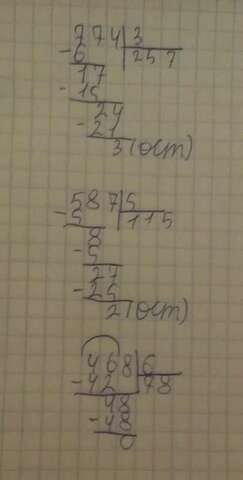 774|3
-6 257
17
-15
24
-21
3(ост)
587|5
-5 115
8
-5
27
-25
2(ост)
468|6
-42 78
48
-48
0